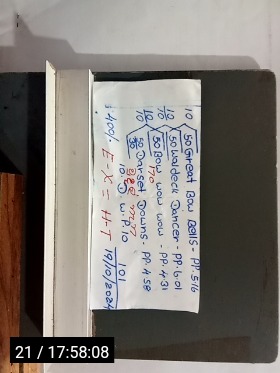 10 50 Great Bow Bells - PP. 516
10/10 50 Waldeck Dancer - PP. 601
10/10 50 Bow wow wow - PP. 431
50 Danset Downs - PP. 458
10. D. W. P. 10
170
101
5.400/. E-X = H-T 19/10/2024
21 / 17:58:08